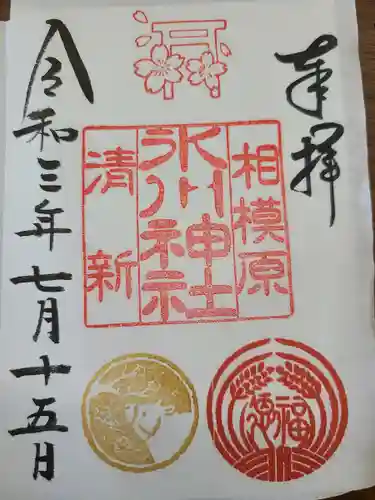 奉拝
相模原
氷川神社
清新
令和三年七月十五日
福